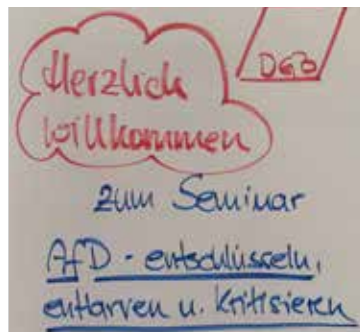 Herzlich
willkommen
DGB
zum Seminar
AfD - entschlüsseln,
entlarven u. kritisieren